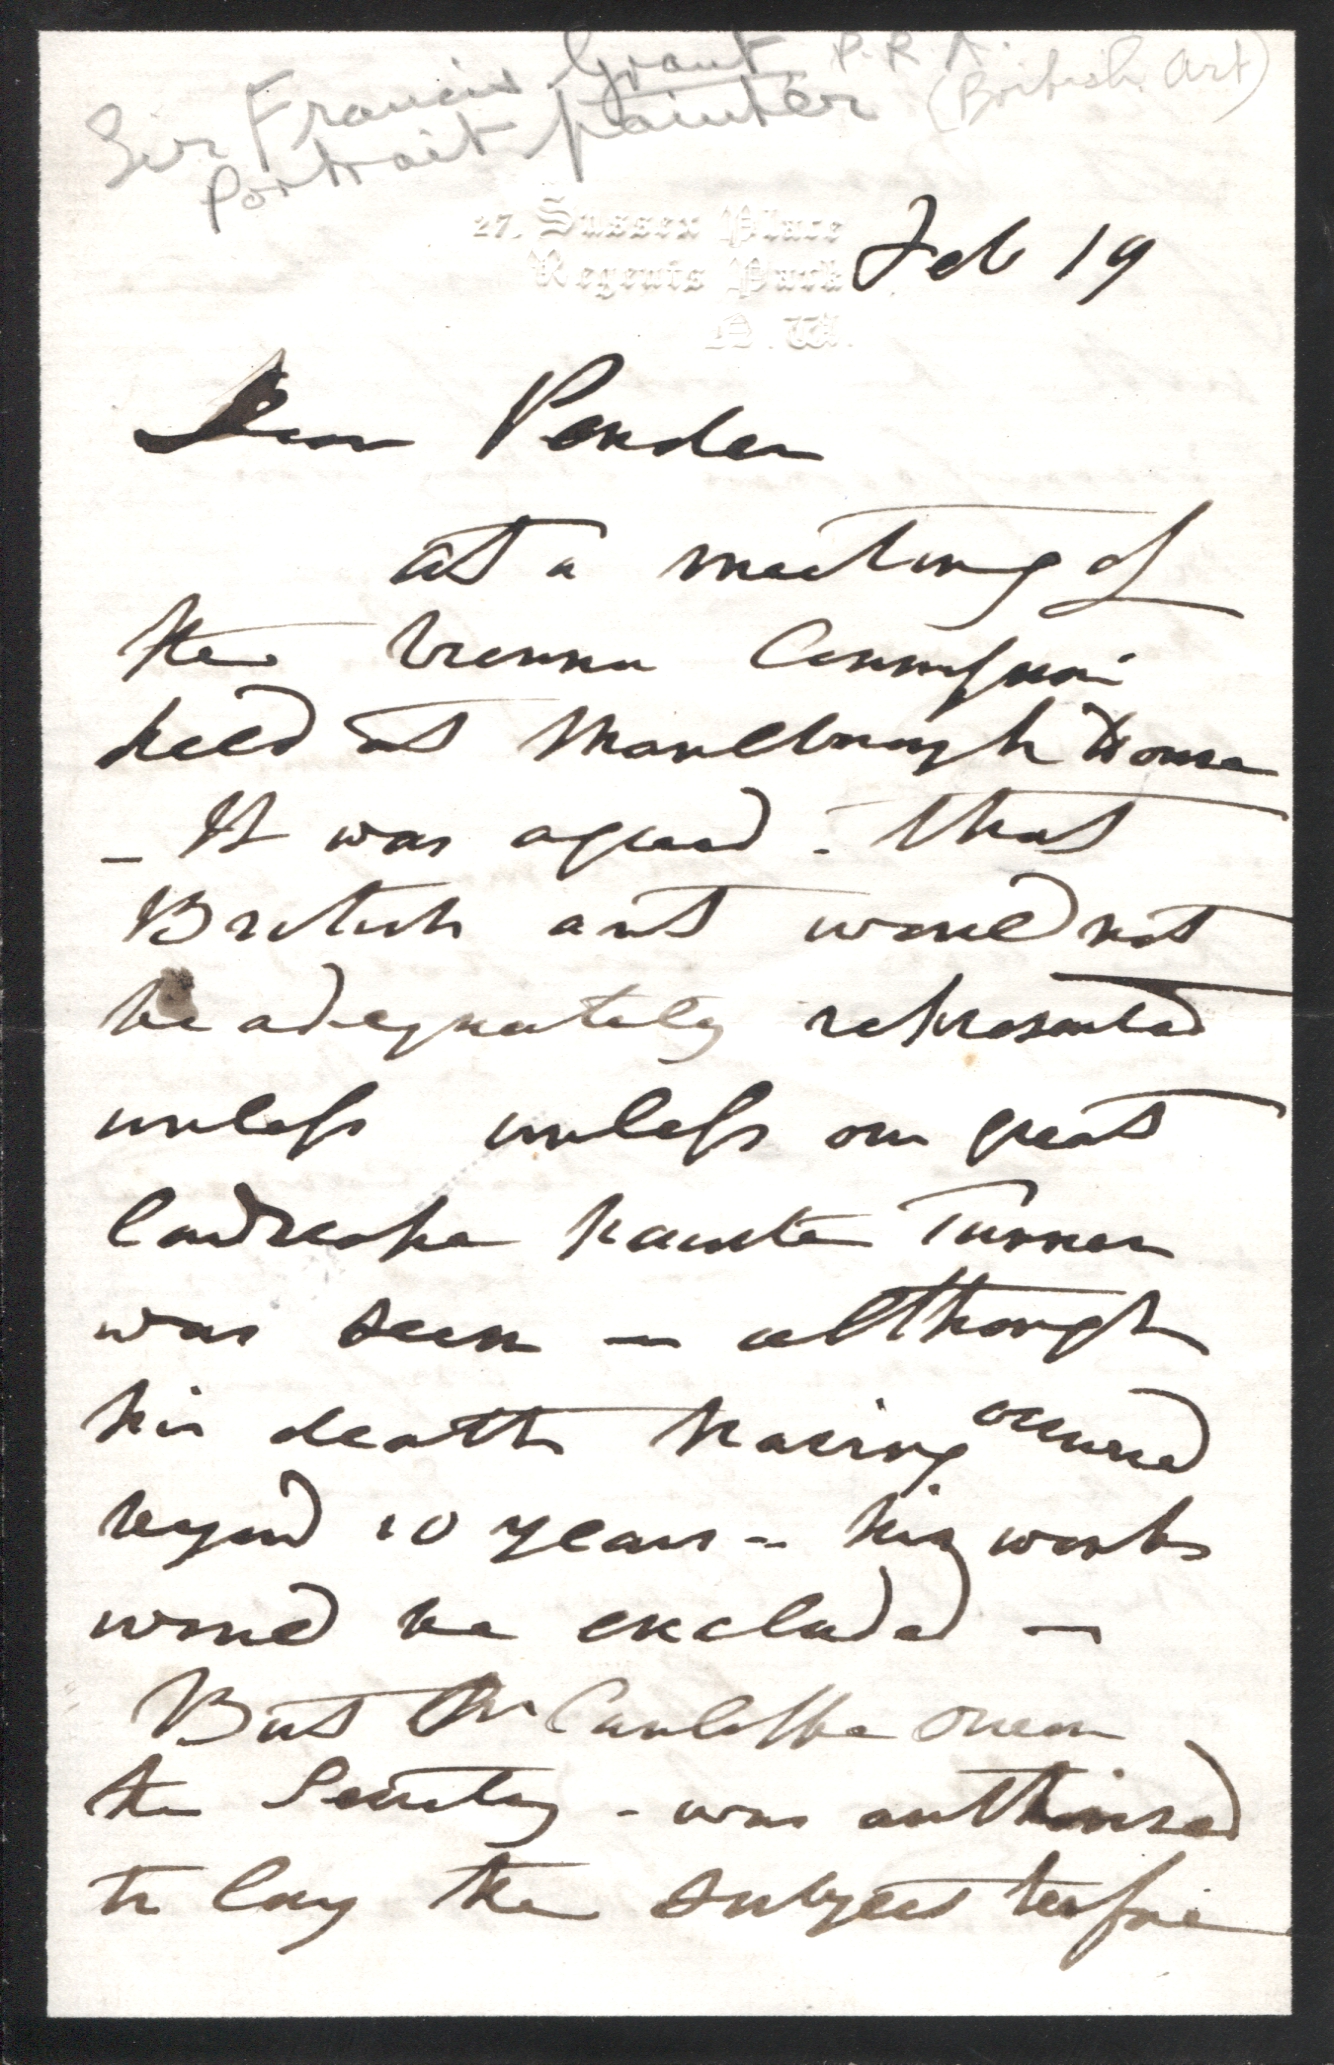 Sir Francis Grant P.R.A.
Portrait painter (British Art)
27, Sussex Place
Regents Park
N.W.
Feb 19
Dear Pender
at a meeting of
the Vienna Commission
held at Marlbrough House
_ It was agreed - that
British art would not
be adequately represented
unless unless our great
landscape painter Turner
was seen — although
his death having occured
beyond 10 years - his works
would be excluded —
But Owen
the Secretary - was authorised
to lay the subject before